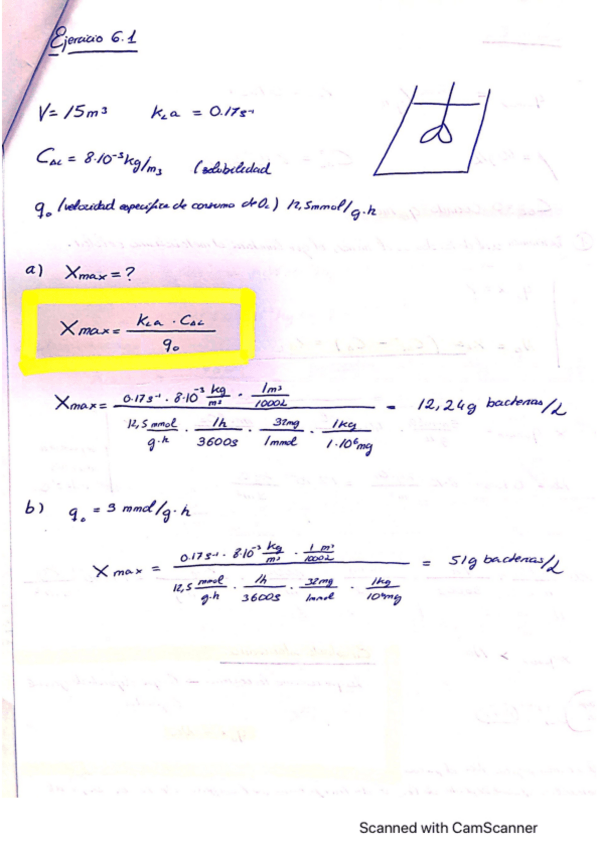 Ejercicio 6.1
V = 15 m³ kLa = 0.17 s⁻¹
CAL = 8·10⁻³ kg/m³ (solubilidad
q₀ (velocidad específica de consumo de O₂) 12,5 mmol/g·h
a) Xmax = ?
Xmax = kLa · CAL / q₀
Xmax = 0.17 s⁻¹ · 8·10⁻³ kg/m³ · 1 m³/1000L / 12,5 mmol/g·h · 1h/3600s · 32mg/1mmol · 1kg/1·10⁶mg = 12,24 g bacterias/L
b) q₀ = 3 mmol/g·h
Xmax = 0.17 s⁻¹ · 8·10⁻³ kg/m³ · 1 m³/1000L / 12,5 mmol/g·h · 1h/3600s · 32mg/1mmol · 1kg/10⁶mg = 51 g bacterias/L
Scanned with CamScanner